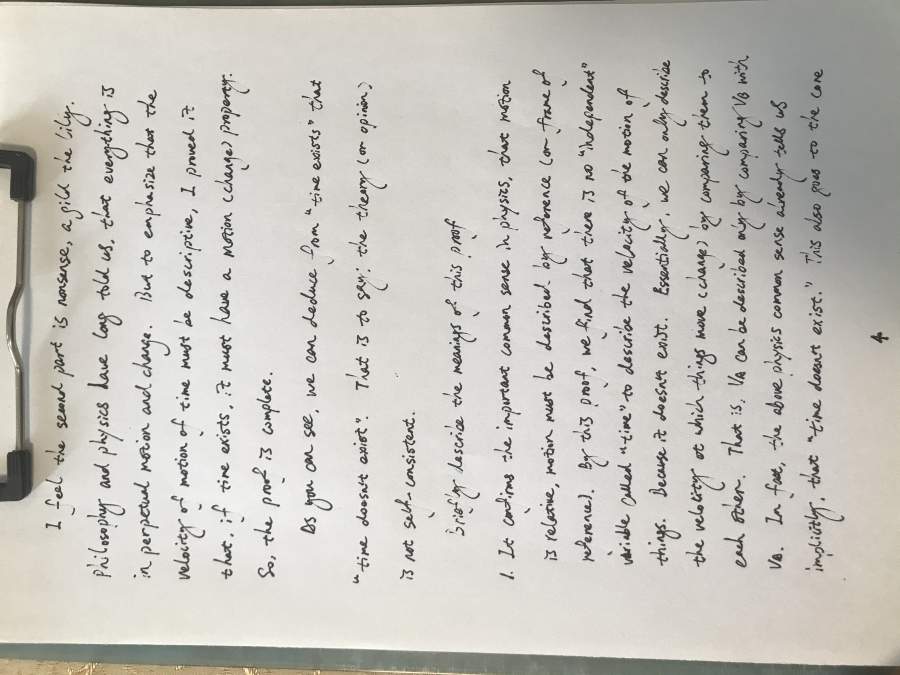 I feel the second part is nonsense, a gild the lily.
Philosophy and physics have long told us, that everything is
in perpetual motion and change. But to emphasize that the
velocity of motion of time must be descriptive, I proved it
that, if time exists, it must have a motion (change) property.
So, the proof is complete.
As you can see, we can deduce from "time exists" that
"time doesn't exist". That is to say: the theory (or opinion)
is not self-consistent.
briefly describe the meanings of this proof
1. It confirms the important common sense in physics, that motion
is relative, motion must be described by reference (or frame of
reference). By this proof, we find that there is no "independent"
variable called "time" to describe the velocity of the motion of
things. Because it doesn't exist. Essentially, we can only describe
the velocity at which things move (change) by comparing them to
each other. That is, VA can be described only by comparing VB with
VB. In fact, the above physics common sense already tells us
implicitly, that "time doesn't exist." This also goes to the core
4